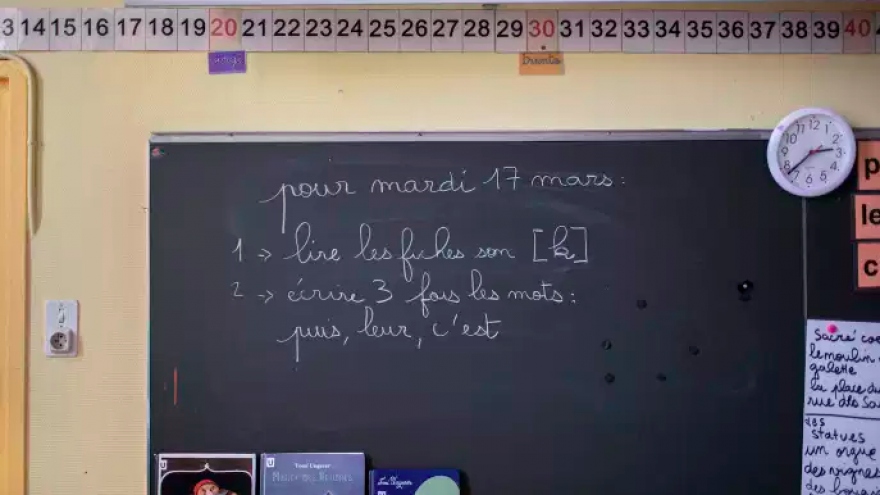 3 14 15 16 17 18 19 20 21 22 23 24 25 26 27 28 29 30 31 32 33 34 35 36 37 38 39 40
vingt
trente
pour mardi 17 mars:
12 1 2 3 4 5 6 7 8 9 10 11
1 → lire les fiches son [k]
2 → écrire 3 fois les mots:
puis, leur, c'est
p
le
c
Sacré coe
le moulin
galette
la place du
rue des Sa
des
statues
un orgue
des vignes
Tomi Ungerer